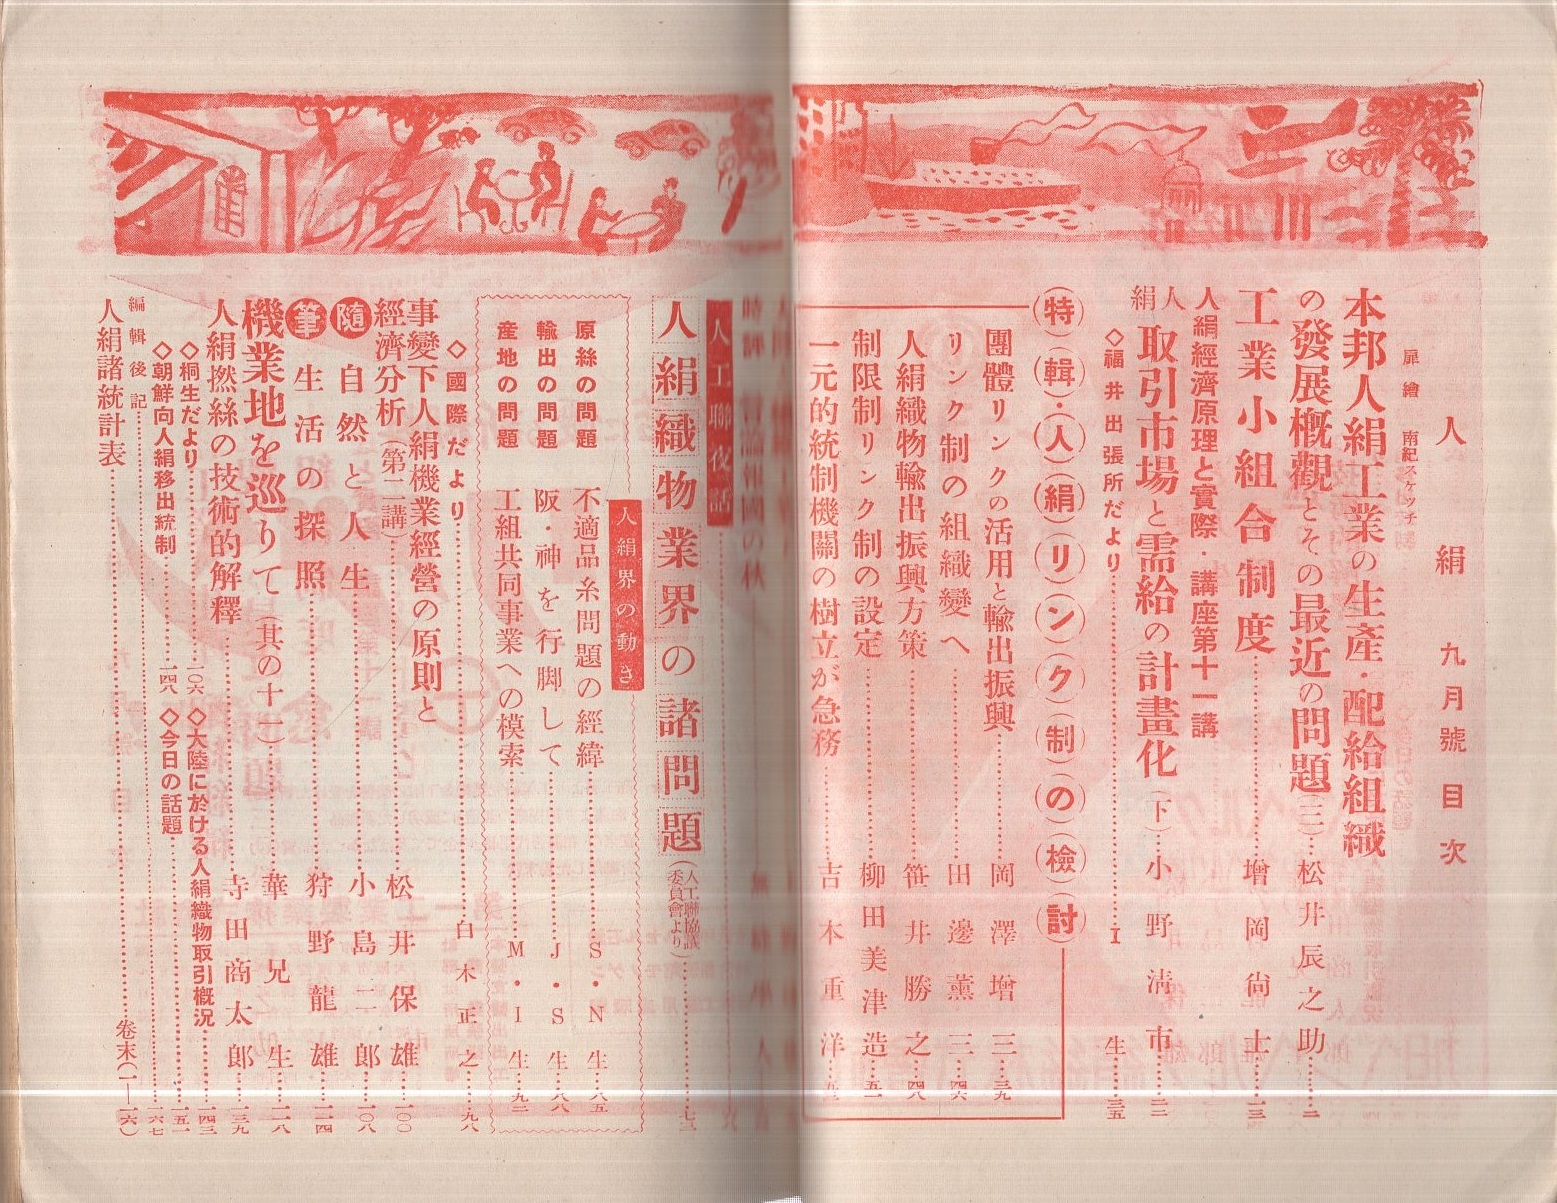 人絹 九月號目次
扉繪 南紀スケッチ
本邦人絹工業の生產・配給組織
の發展概觀とその最近の問題(三) 松井辰之助…二
工業小組合制度…增岡尙士…一三
人絹經濟原理と實際・講座第十一講
人絹 取引市場と需給の計畫化(下) 小野淸市…二二
◇福井出張所だより…I生…三五
(特)(輯)・(人)(絹)(リ)(ン)(ク)(制)(の)(檢)(討)
團體リンクの活用と輸出振興…岡澤增三…三九
リンク制の組織變へ…田邊薰三…四六
人絹織物輸出振興方策…笹井勝之…四八
制限制リンク制の設定…柳田美津造…五一
一元的統制機關の樹立が急務…吉本重洋
時評 言論報國の秋
人工聯夜話
人絹織物業界の諸問題(人工聯協議委員會より)…七三
人絹界の動き
原絲の問題 不適品糸問題の經緯…S・N生…八五
輸出の問題 阪・神を行脚して…J・S生…八八
産地の問題 工組共同事業への模索…M・I生…九二
◇國際だより…白木正之…九八
事變下人絹機業經營の原則と
經濟分析(第二講)…松井保雄…一〇〇
隨 自然と人生…小島二郎…一〇八
筆 生活の探照…狩野龍雄…一一四
機業地を巡りて(其の十一)…華兄生…一二八
人絹撚絲の技術的解釋…寺田商太郎…一三九
◇桐生だより…一〇六 ◇大陸に於ける人絹織物取引概況…一四三
◇朝鮮向人絹移出統制…一四八 ◇今日の話題…一五一
編輯後記…一六七
人絹諸統計表…卷末(一—一六)